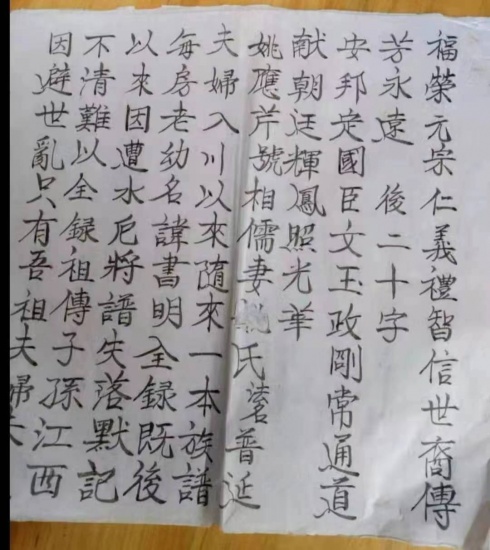 福榮元宗仁義禮智信世裔傳
芳永遠 後二十字
安邦定國臣文玉政剛常通道
献朝廷輝鳳照光華
姚應芹號相儒妻 氏 普延
夫婦入川以來隨來一本族譜
每房老幼名諱書明全録既後
以來因遭水厄將譜失落默記
不清難以全録祖傳子孫江西
因避世亂只有吾祖夫婦